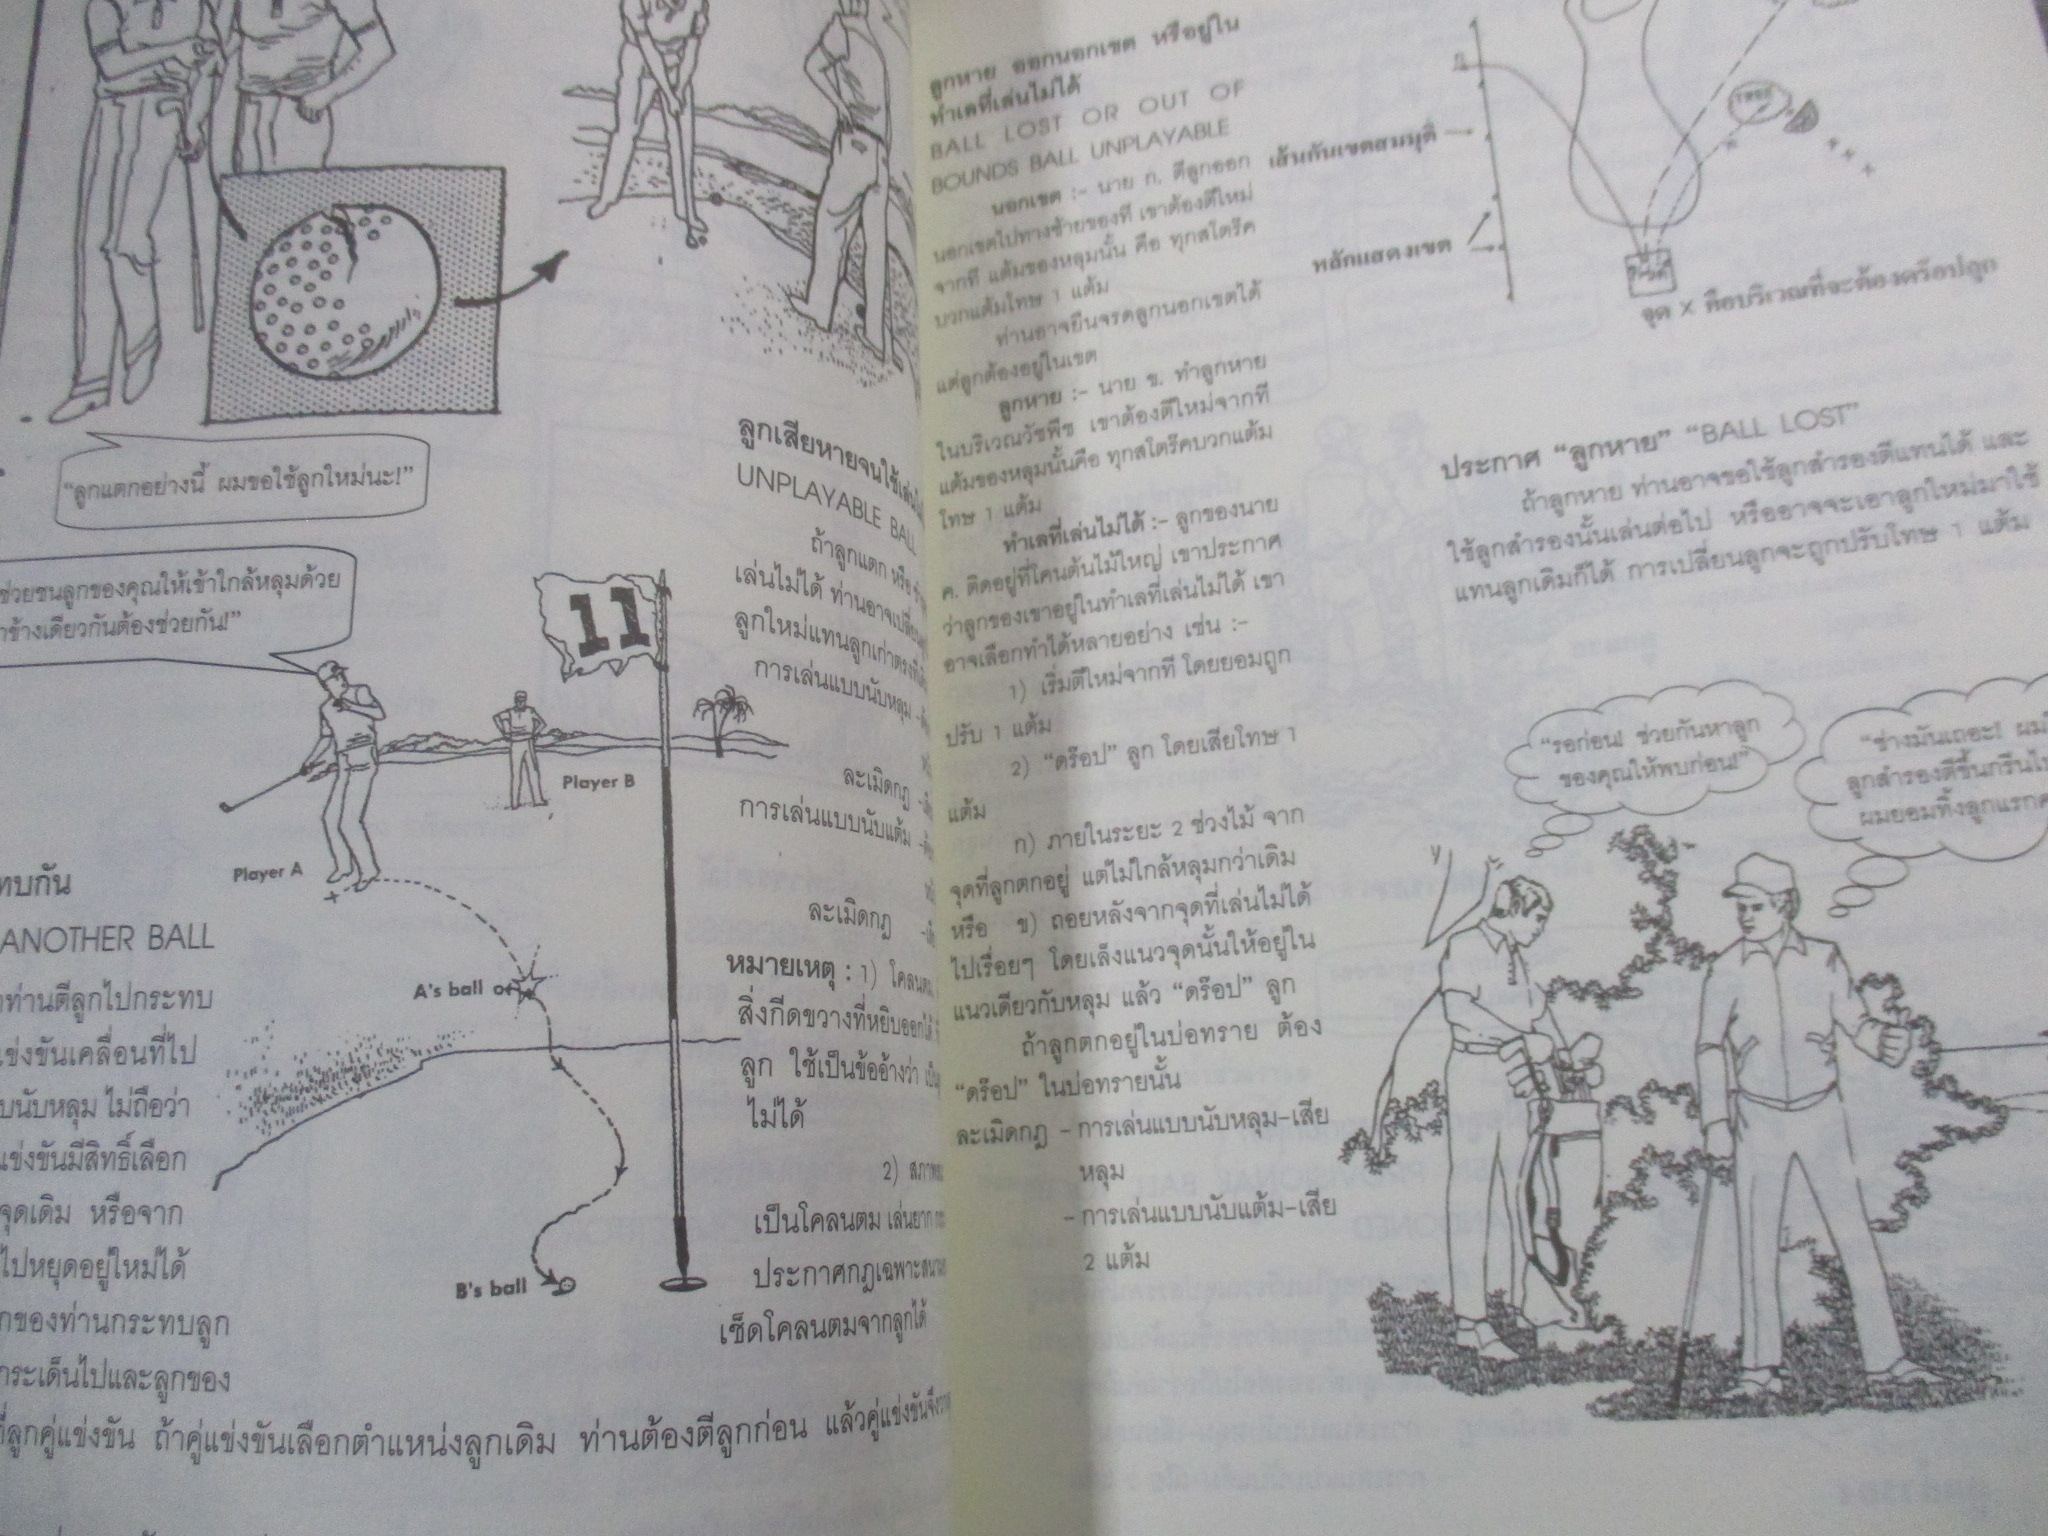 "ลูกแตกอย่างนี้ ผมขอใช้ลูกใหม่นะ!"
ช่วยชนลูกของคุณให้เข้าใกล้หลุมด้วย
ข้างเดียวกันต้องช่วยกัน!"
11
Player B
Player A
A's ball
B's ball
ทบกัน
ANOTHER BALL
ท่านตีลูกไปกระทบ
แข่งขันเคลื่อนที่ไป
บนับหลุม ไม่ถือว่า
แข่งขันมีสิทธิ์เลือก
จุดเดิม หรือจาก
ไปหยุดอยู่ใหม่ได้
ของท่านกระทบลูก
กระเด็นไปและลูกของ
ที่ลูกคู่แข่งขัน ถ้าคู่แข่งขันเลือกตำแหน่งลูกเดิม ท่านต้องตีลูกก่อน แล้วคู่แข่งขันจึง
ลูกเสียหายจนใช้เล่น
UNPLAYABLE BALL
ถ้าลูกแตก หรือ
เล่นไม่ได้ ท่านอาจเปลี่ยน
ลูกใหม่แทนลูกเก่าตรงที่
การเล่นแบบนับหลุม
ละเมิดกฎ
การเล่นแบบนับแต้ม
ละเมิดกฎ
หมายเหตุ : 1) โคลนตม
สิ่งกีดขวางที่หยิบออกได้
ลูก ใช้เป็นข้ออ้างว่า
ไม่ได้
2) สภาพ
เป็นโคลนตม เล่นยาก
ประกาศกฎเฉพาะสนาม
เช็ดโคลนตมจากลูกได้
ลูกหาย ออกนอกเขต หรือยู่ใน
ทำเลที่เล่นไม่ได้
BALL LOST OR OUT OF
BOUNDS BALL UNPLAYABLE
นอกเขต :- นาย ก. ตีลูกออก
นอกเขตไปทางซ้ายของที เขาต้องตีใหม่
จากที แต้มของหลุมนั้น คือ ทุกสโตร๊ค
บวกแต้มโทษ 1 แต้ม
ท่านอาจยืนจรดลูกนอกเขตได้
แต่ลูกต้องอยู่ในเขต
ลูกหาย :- นาย ข. ทำลูกหาย
ในบริเวณวัชพืช เขาต้องตีใหม่จากที
แต้มของหลุมนั้นคือ ทุกสโตร๊คบวกแต้ม
โทษ 1 แต้ม
ทำเลที่เล่นไม่ได้ :- ลูกของนาย
ค. ติดอยู่ที่โคนต้นไม้ใหญ่ เขาประกาศ
ว่าลูกของเขาอยู่ในทำเลที่เล่นไม่ได้ เขา
อาจเลือกทำได้หลายอย่าง เช่น :-
1) เริ่มตีใหม่จากที โดยยอมถูก
ปรับ 1 แต้ม
2) "ดร๊อป" ลูก โดยเสียโทษ 1
แต้ม
ก) ภายในระยะ 2 ช่วงไม้ จาก
จุดที่ลูกตกอยู่ แต่ไม่ใกล้หลุมกว่าเดิม
หรือ ข) ถอยหลังจากจุดที่เล่นไม่ได้
ไปเรื่อยๆ โดยเล็งแนวจุดนั้นให้อยู่ใน
แนวเดียวกับหลุม แล้ว "ดร๊อป" ลูก
ถ้าลูกตกอยู่ในบ่อทราย ต้อง
"ดร๊อป" ในบ่อทรายนั้น
ละเมิดกฎ - การเล่นแบบนับหลุม-เสีย
หลุม
- การเล่นแบบนับแต้ม-เสีย
2 แต้ม
เส้นกั้นเขตสมมุติ
หลักแสดงเขต
จุด X คือบริเวณที่จะต้องดร๊อปลูก
ประกาศ "ลูกหาย" "BALL LOST"
ถ้าลูกหาย ท่านอาจขอใช้ลูกสำรองตีแทนได้ และ
ใช้ลูกสำรองนั้นเล่นต่อไป หรืออาจจะเอาลูกใหม่มาใช้
แทนลูกเดิมก็ได้ การเปลี่ยนลูกจะถูกปรับโทษ 1 แต้ม
"รอก่อน! ช่วยกันหาลูก
ของคุณให้พบก่อน!"
"ช่างมันเถอะ! ผม
ลูกสำรองตีขึ้นกรีน
ผมยอมทิ้งลูกแรก